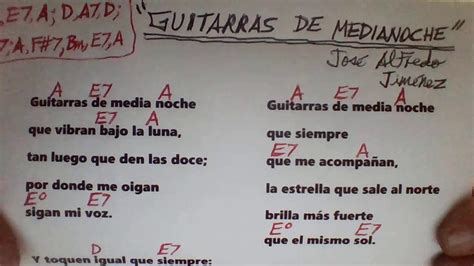 , E7, A; D, A7, D;
7; A, F#7, Bm, E7, A
"GUITARRAS DE MEDIANOCHE"
José Alfredo
Jiménez
A E7 A
Guitarras de media noche
E7 A
que vibran bajo la luna,
tan luego que den las doce;
por donde me oigan
Eº E7
sigan mi voz.
D E7
Y toquen igual que siempre:
A E7 A
Guitarras de media noche
que siempre
E7 A
que me acompañan,
la estrella que sale al norte
brilla más fuerte
Eº E7
que el mismo sol.